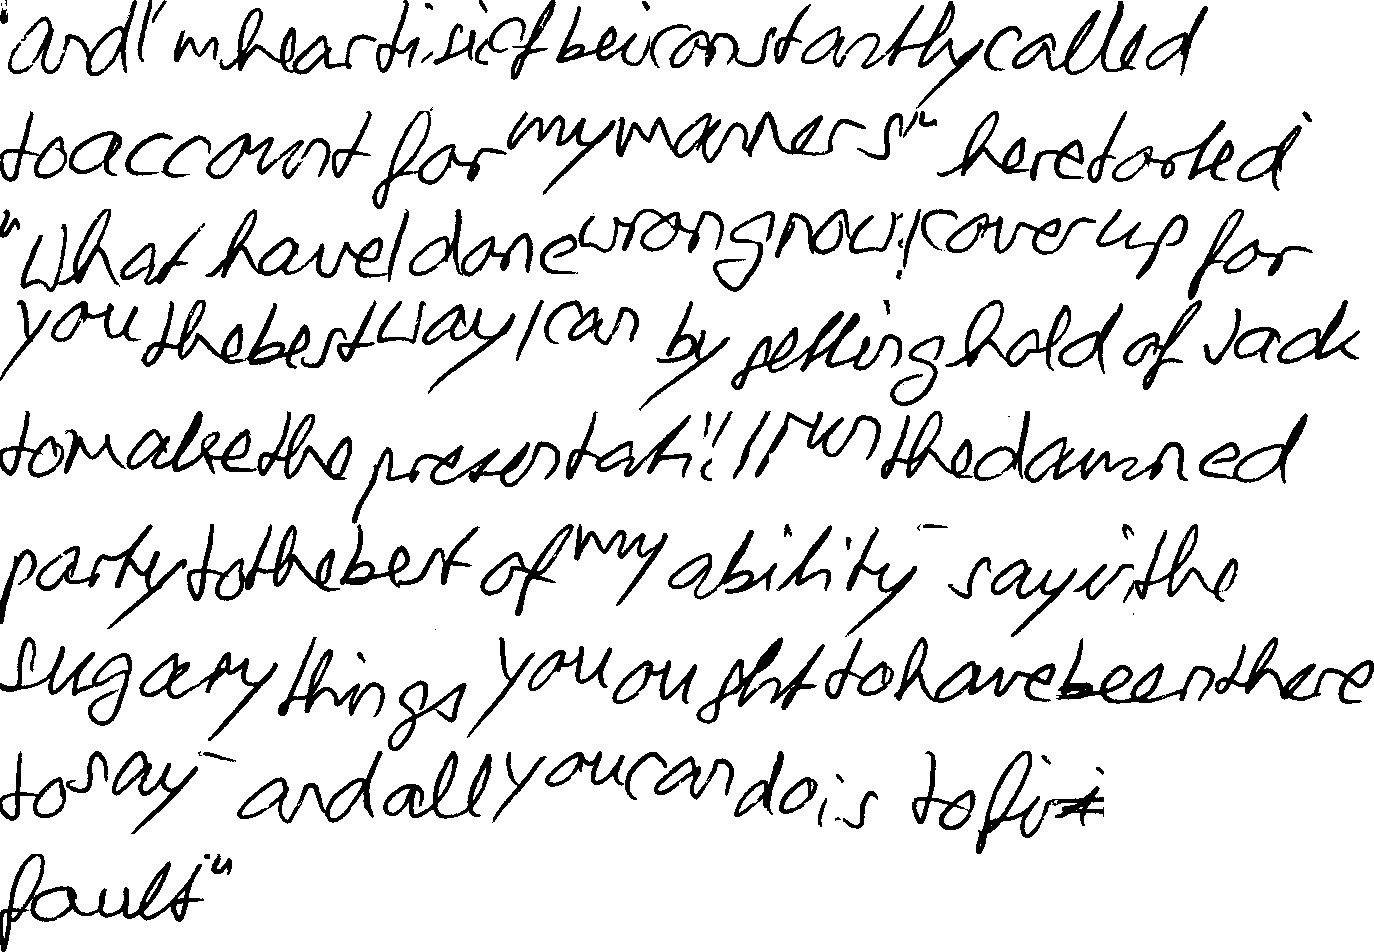 "And I'm heartily sick of being constantly called
to account for my manners" he retorted
"What have I done wrong now? I cover up for
you the best way I can by getting hold of Jack
to make the presentation! I run the damned
party to the best of my ability - say in the
sugary things you ought to have been there
to say - and all you can do is to find
fault"